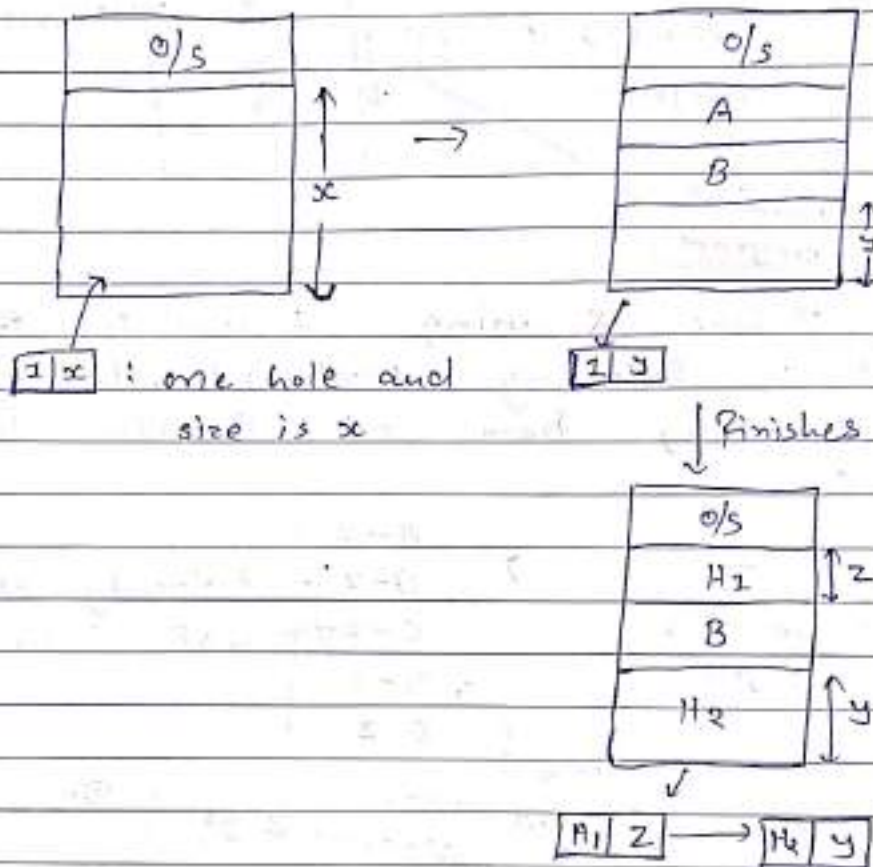 O/S
x
→
O/S
A
B
y
1 x : one hole and
size is x
1 y
↓ Finishes
O/S
H1
z
B
H2
y
H1 z → H2 y